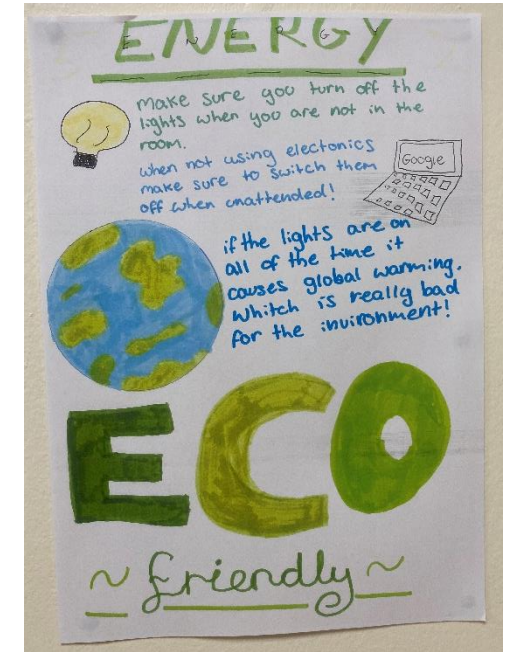 ENERGY
make sure you turn off the
lights when you are not in the
room.
when not using electonics
make sure to switch them
off when unattended!
Google
if the lights are on
all of the time it
causes global warming.
whitch is really bad
for the invironment!
ECO
~ friendly ~